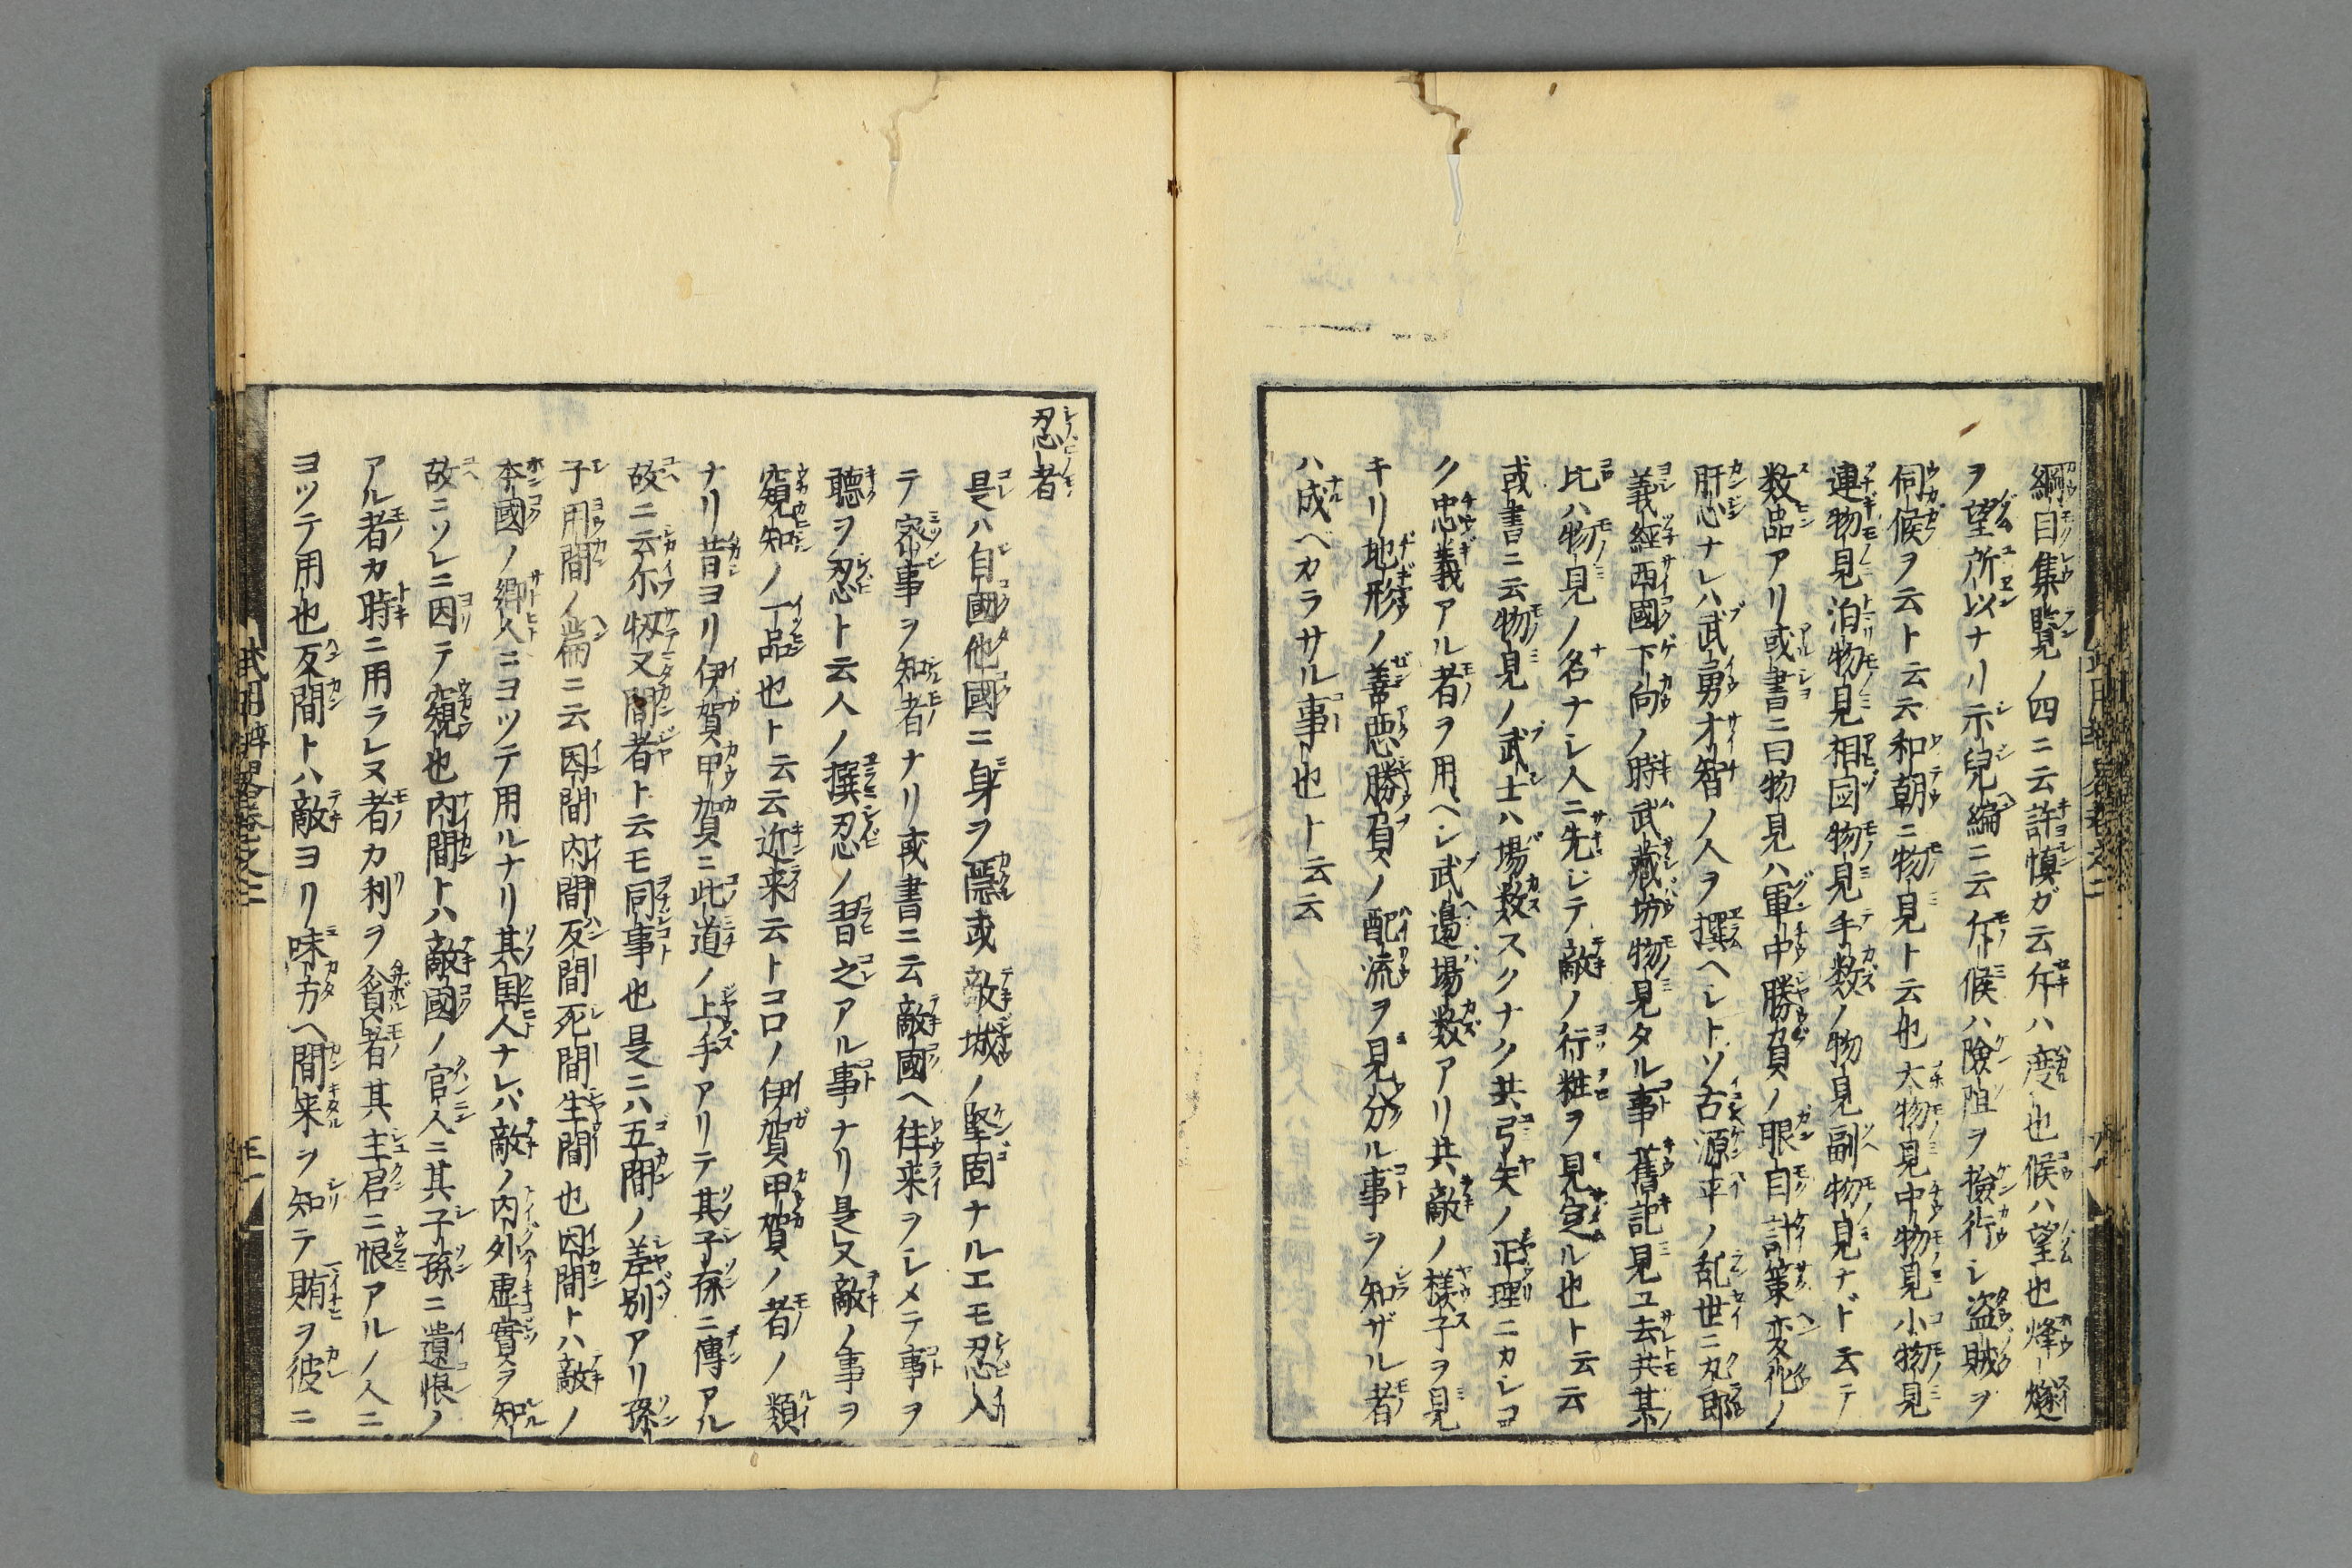 綱目集覧ノ四ニ云許慎ガ云斥ハ度也候ハ望也烽燧
ヲ望所以ナリ示兒編ニ云斥候ハ險阻ヲ撿行シ盗賊ヲ
伺候ヲ云ト云云和朝ニ物見ト云也大物見中物見小物見
連物見泊物見相図物見手数ノ物見副物見ナド云テ
数品アリ或書ニ曰物見ハ軍中勝負ノ眼目計策変化ノ
肝心ナレハ武勇才智ノ人ヲ撰ヘシトソ古源平ノ乱世ニ九郎
義經西國下向ノ時武藏坊物見タル事舊記見ユ去共其
比ハ物見ノ名ナシ人ニ先シテ敵ノ行粧ヲ見定ル也ト云云
或書ニ云物見ノ武士ハ場数スクナク共弓矢ノ正理ニカシコ
ク忠義アル者ヲ用ヘシ武邉場数アリ共敵ノ様子ヲ見
キリ地形ノ善悪勝負ノ配流ヲ見分ル事ヲ知ザル者
ハ成ベカラサル事也ト云云
忍者
是ハ自國他國ニ身ヲ隠或敵城ノ堅固ナルエモ忍入
テ密事ヲ知者ナリ或書ニ云敵國ヘ往来ヲシメテ事ヲ
聴ヲ忍ト云人ノ撰忍ノ習之アル事ナリ是又敵ノ事ヲ
窺知ノ一品也ト云云近来云トコロノ伊賀甲賀ノ者ノ類
ナリ昔ヨリ伊賀甲賀ニ此道ノ上手アリテ其子孫ニ傳アル
故ニ云尓扨又間者ト云モ同事也是ニハ五間ノ差別アリ孫
子用間ノ篇ニ云因間内間反間死間生間也因間トハ敵ノ
本國ノ郷人ニヨツテ用ルナリ其國人ナレハ敵ノ内外虚實ヲ知
故ニソレニ因テ窺也内間トハ敵國ノ官人ニ其子孫ニ遺恨ノ
アル者カ時ニ用ラレヌ者カ利ヲ貪者其主君ニ恨アルノ人ニ
ヨツテ用也反間トハ敵ヨリ味方ヘ間来ヲ知テ賄ヲ彼ニ